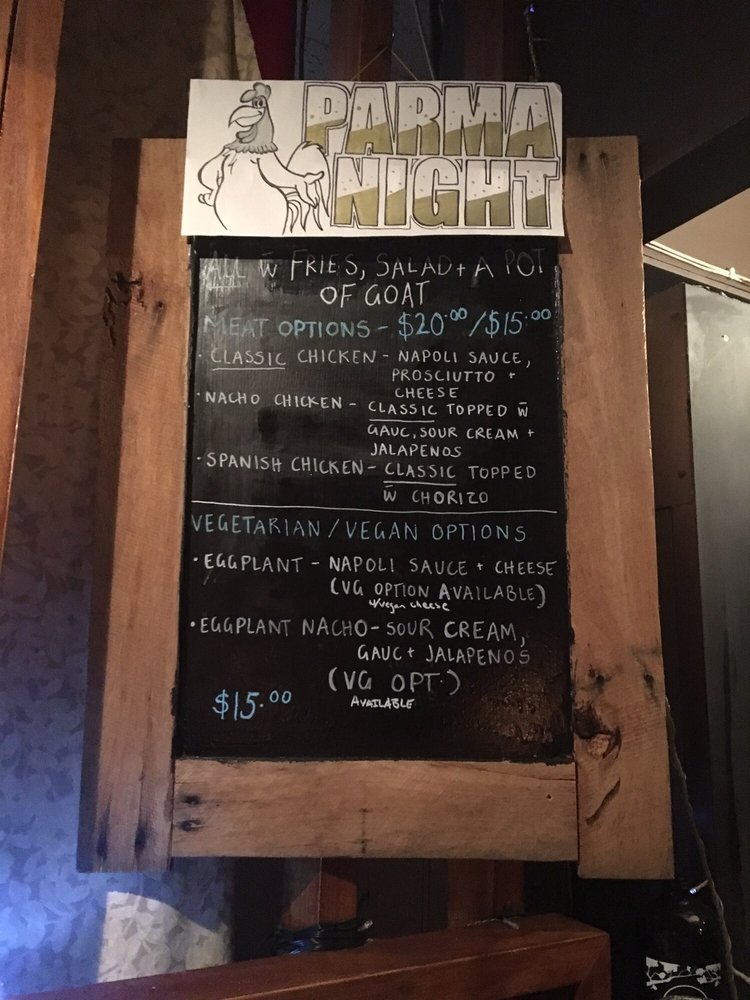 PARMA
NIGHT
ALL w̄ FRIES, SALAD + A POT
OF GOAT
MEAT OPTIONS - $20.00/$15.00
· CLASSIC CHICKEN - NAPOLI SAUCE,
PROSCIUTTO +
CHEESE
· NACHO CHICKEN - CLASSIC TOPPED w̄
GAUC, SOUR CREAM +
JALAPENOS
· SPANISH CHICKEN - CLASSIC TOPPED
w̄ CHORIZO
VEGETARIAN / VEGAN OPTIONS
· EGGPLANT - NAPOLI SAUCE + CHEESE
(VG OPTION AVAILABLE)
w/vegan cheese
· EGGPLANT NACHO - SOUR CREAM,
GAUC + JALAPENOS
(VG OPT.)
AVAILABLE
$15.00